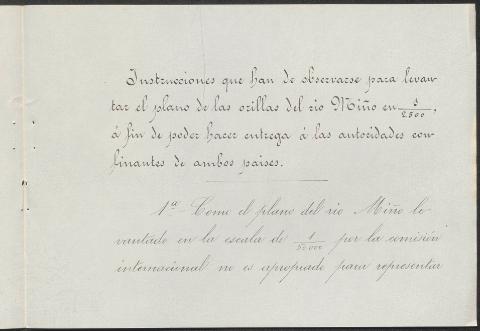 Instrucciones que han de observarse para levan-
tar el plano de las orillas del rio Miño en 1/2500,
á fin de poder hacer entrega á las autoridades con-
finantes de ambos paises.
1ª Como el plano del rio Miño le-
vantado en la escala de 1/50.000 por la comisión
internacional no es apropiado para representar